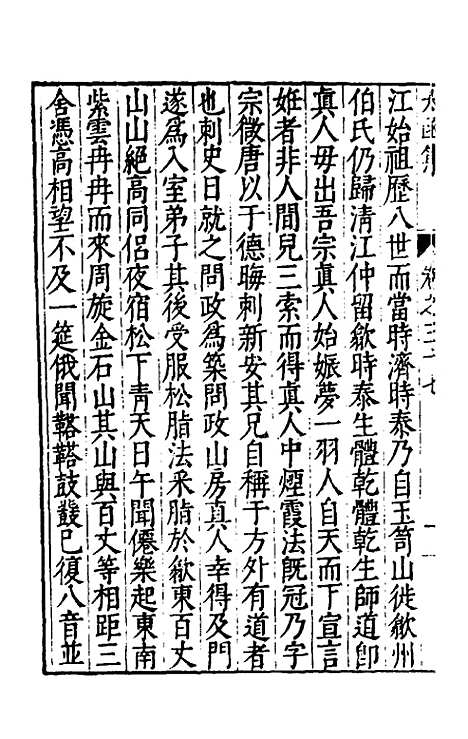 太函集 卷之三十七 一
江始祖歷八世而當時濟時泰乃自玉笥山徙歙州
伯氏仍歸清江仲留歙時泰生體乾體乾生師道卽
真人毋出吾宗真人始娠夢一羽人自天而下宣言
姙者非人間兒三索而得真人中煙霞法旣冠乃字
宗微唐以于德晦刺新安其兄自稱于方外有道者
也刺史日就之問政爲築問政山房真人幸得及門
遂爲入室弟子其後受服松脂法采脂於歙東百丈
山山絕高同侶夜宿松下靑天日午聞僊樂起東南
紫雲冉冉而來周旋金石山其山與百丈等相距三
舍憑高相望不及一筵俄聞鞳鞳鼓鼛已復八音並